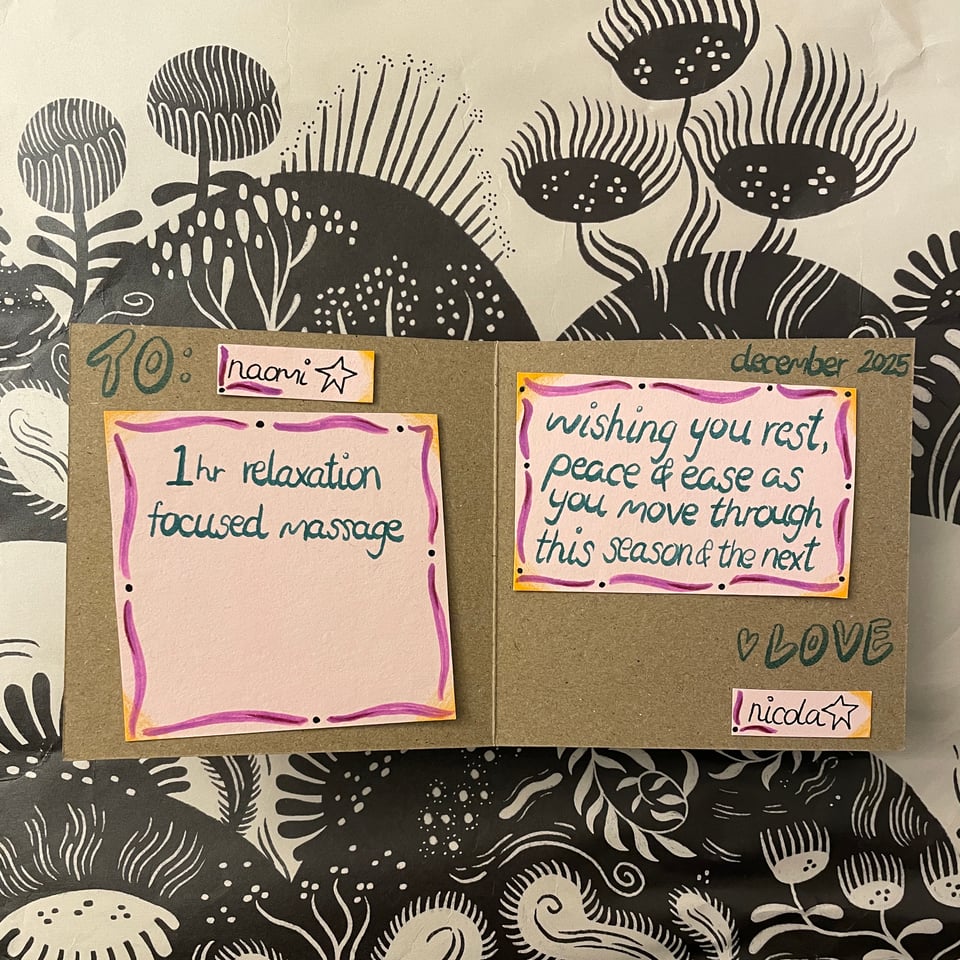 TO: naomi
1hr relaxation
focused massage
december 2025
wishing you rest,
peace & ease as
you move through
this season & the next
LOVE
nicola